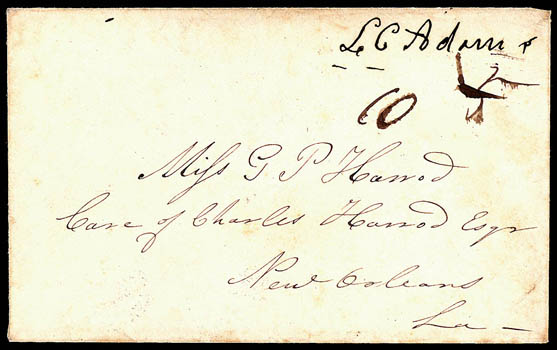 L C Adams
10
Miss G P Harrod
Care of Charles Harrod Esqr
New Orleans
La —